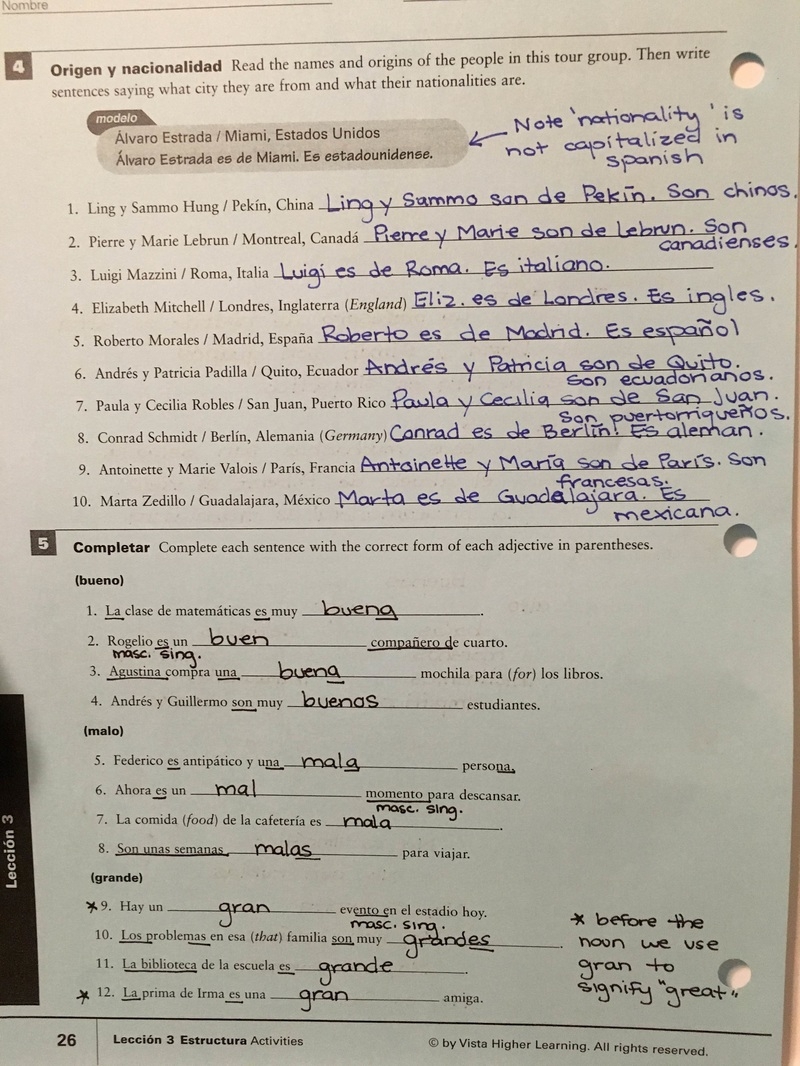 Nombre
4 Origen y nacionalidad Read the names and origins of the people in this tour group. Then write
sentences saying what city they are from and what their nationalities are.
modelo
Álvaro Estrada / Miami, Estados Unidos
Álvaro Estrada es de Miami. Es estadounidense.
Note 'nationality' is
not capitalized in
spanish
1. Ling y Sammo Hung / Pekín, China Ling y Sammo son de Pekín. Son chinos.
2. Pierre y Marie Lebrun / Montreal, Canadá Pierre y Marie son de Lebrun. Son
canadienses.
3. Luigi Mazzini / Roma, Italia Luigi es de Roma. Es italiano.
4. Elizabeth Mitchell / Londres, Inglaterra (England) Eliz. es de Londres. Es ingles.
5. Roberto Morales / Madrid, España Roberto es de Madrid. Es español
6. Andrés y Patricia Padilla / Quito, Ecuador Andrés y Patricia son de Quito.
Son ecuadorianos.
7. Paula y Cecilia Robles / San Juan, Puerto Rico Paula y Cecilia son de San Juan.
Son puertorriqueños.
8. Conrad Schmidt / Berlín, Alemania (Germany) Conrad es de Berlín. Es aleman.
9. Antoinette y Marie Valois / París, Francia Antoinette y María son de París. Son
francesas.
10. Marta Zedillo / Guadalajara, México Marta es de Guadalajara. Es
mexicana.
5 Completar Complete each sentence with the correct form of each adjective in parentheses.
(bueno)
1. La clase de matemáticas es muy buena.
2. Rogelio es un buen compañero de cuarto.
masc. sing.
3. Agustina compra una buena mochila para (for) los libros.
4. Andrés y Guillermo son muy buenos estudiantes.
(malo)
5. Federico es antipático y una mala persona.
6. Ahora es un mal momento para descansar.
masc. sing.
7. La comida (food) de la cafetería es mala.
8. Son unas semanas malas para viajar.
(grande)
* 9. Hay un gran evento en el estadio hoy.
masc. sing.
10. Los problemas en esa (that) familia son muy grandes.
11. La biblioteca de la escuela es grande.
* 12. La prima de Irma es una gran amiga.
* before the
noun we use
gran to
signify "great"
Lección 3
26 Lección 3 Estructura Activities © by Vista Higher Learning. All rights reserved.